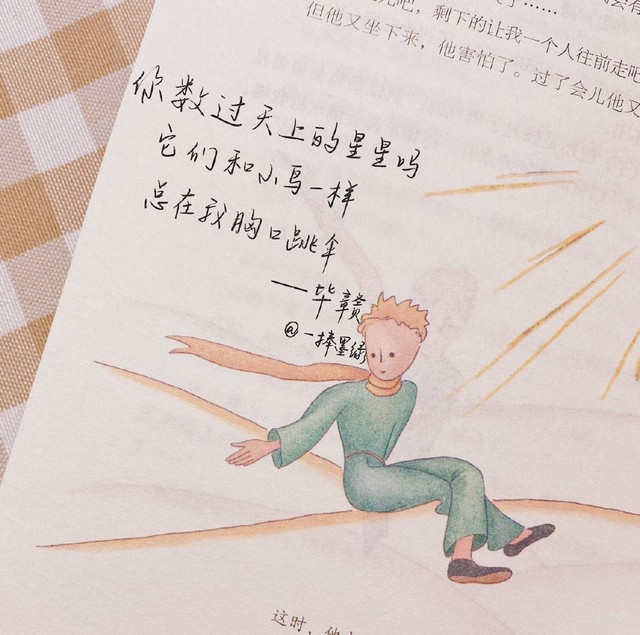 吧，剩下的让我一个人往前走吧
但他又坐下来，他害怕了。过了会儿他又
你数过天上的星星吗
它们和小鸟一样
总在我胸口跳伞
——毕赣
@一捧墨绿
这时，他